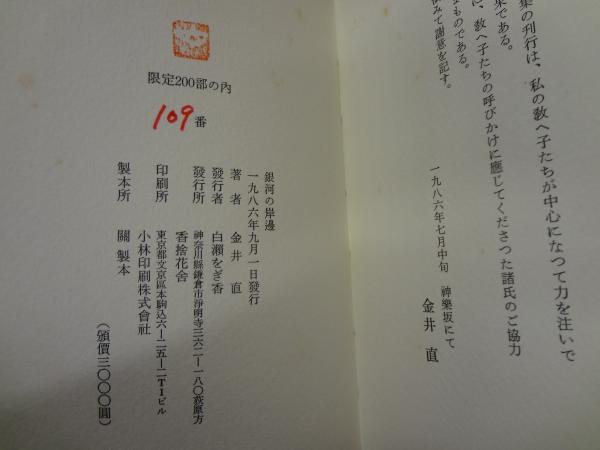 集の刊行は、私の敎へ子たちが中心になつて力を注いで
である。
に、敎へ子たちの呼びかけに應じてくださつた諸氏のご協力
ものである。
みて謝意を記す。
一九八六年七月中旬　神樂坂にて
金井　直
限定200部の內
109番
銀河の岸邊
一九八六年九月一日發行
著者　金井　直
發行者　白瀨をぎ香
發行所　香捨花舍
神奈川縣鎌倉市淨明寺三六二―一八〇萩原方
印刷所　小林印刷株式會社
東京都文京區本駒込六―二五―二TIビル
製本所　關製本
（頒價三〇〇〇圓）